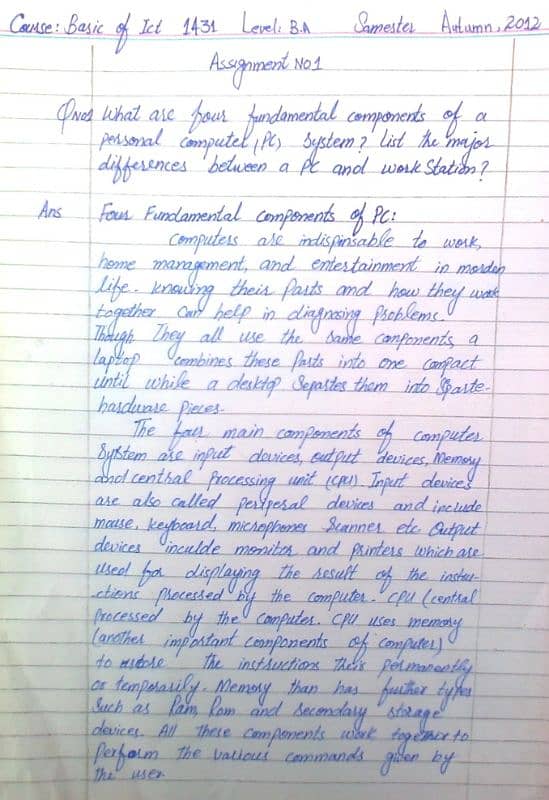 Course: Basic of Ict 1431 Level: B.A Samester Autumn, 2012
Assignment No1
QNo1 What are four fundamental components of a
personal computer (PC) System? List the major
differences between a PC and work Station?
Ans Four Fundamental components of PC:
Computers are indispinsable to work,
home management, and entertainment in mordan
life. Knowing their Parts and how they work
together can help in diagnosing Problems.
Though They all use the same components, a
laptop combines these Parts into one compact
until while a desktop Separtes them into Sparte-
hardware Pieces.
The four main components of computer
System are input davices, output devices, Memory
and central Processing unit (CPU). Input devices
are also called peripersal devices and include
mouse, keyboard, microphones Scanner etc. Output
devices inculde monitor and printers which are
used for displaying the result of the instru-
ctions processed by the computer. CPU (central
Processed by the computer. CPU uses memory
(another important components of computer)
to the instructions permanently
or temporarily. Memory than has further types
Such as Ram, Rom and secondary storage
devices. All these components work together to
Perform the various commands given by
the user.